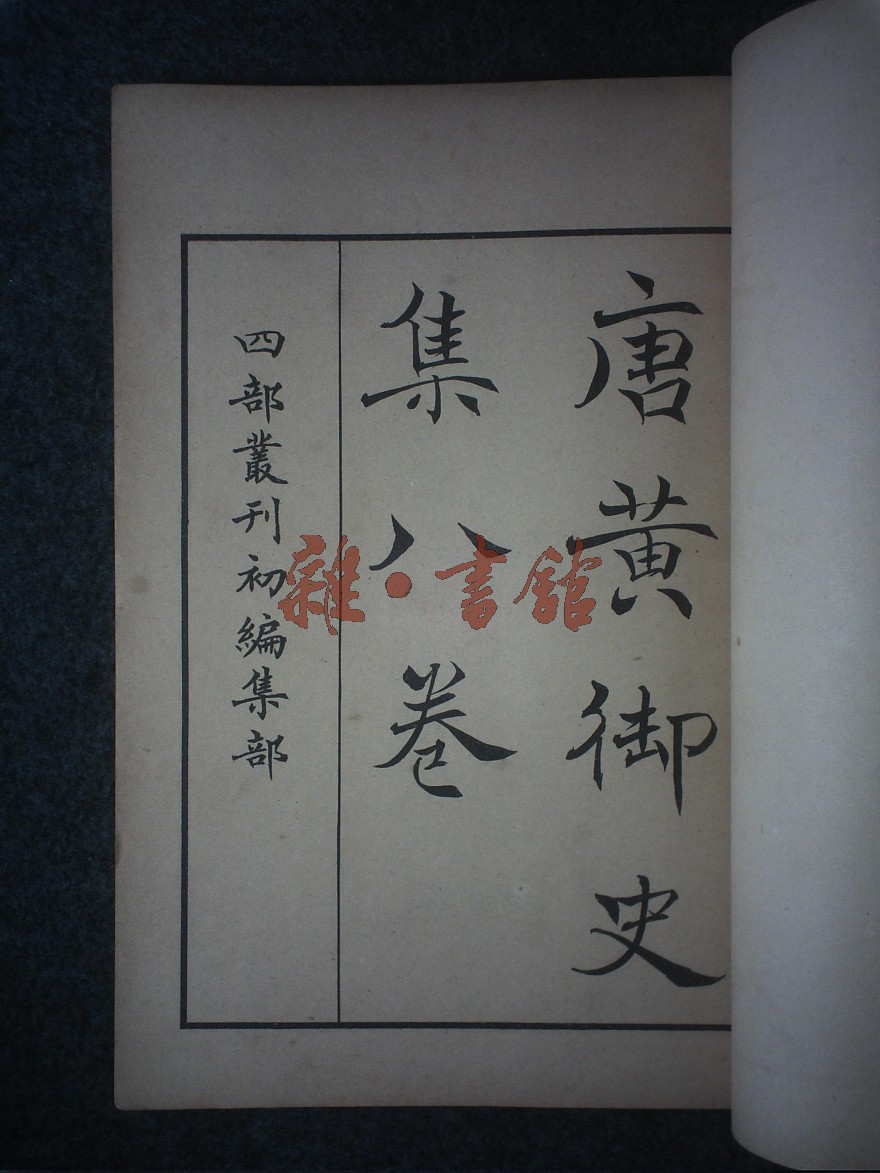 唐黃御史
集八卷
四部叢刊初編集部
雜·書館